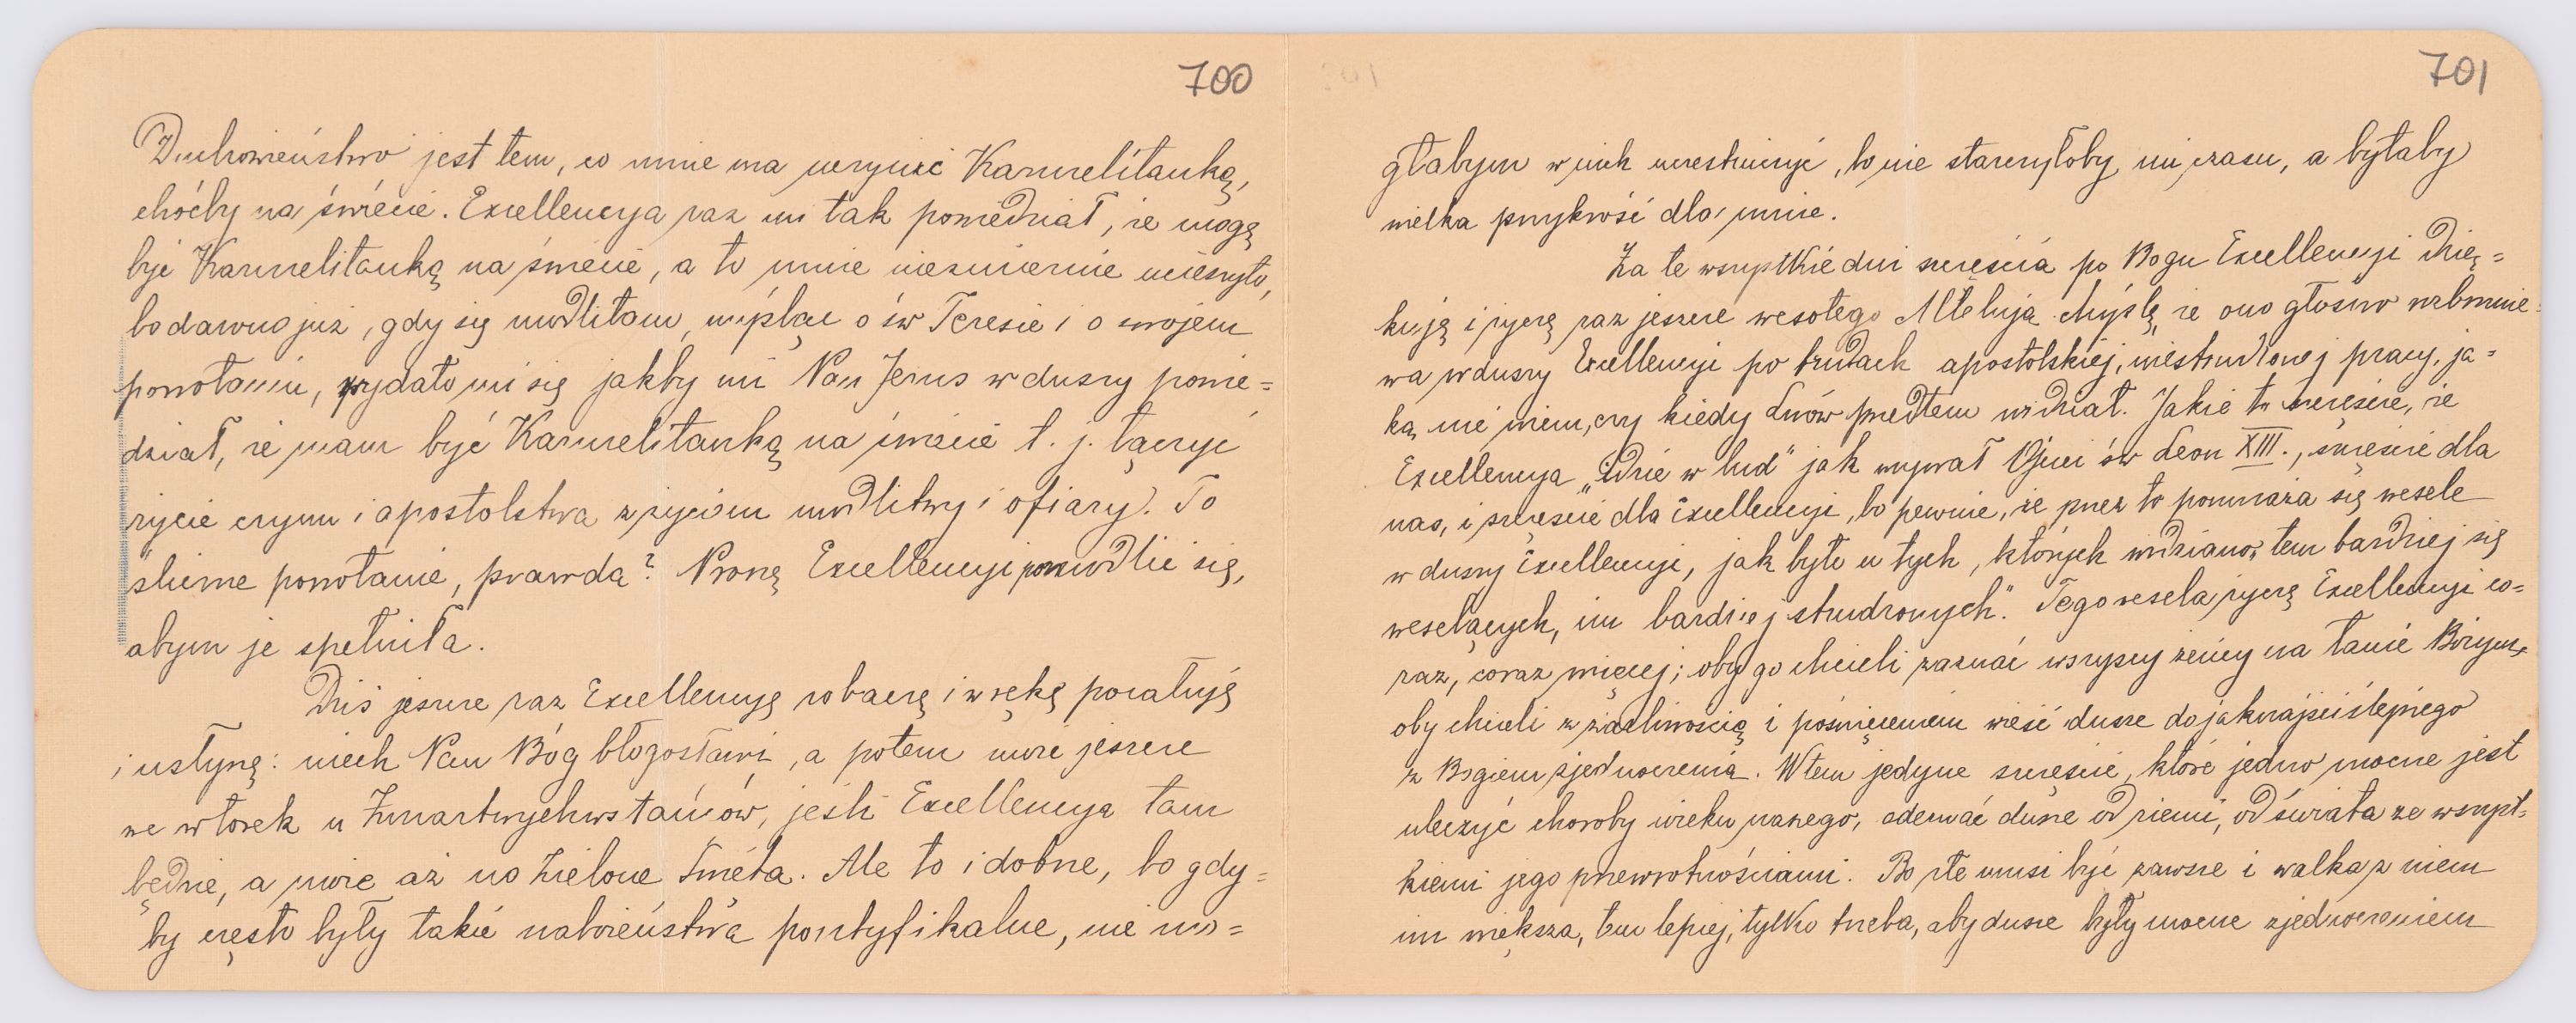 700
Duchowieństwo jest tem, co mnie ma uczynić Karmelitanką,
choćby na świecie. Excellencya raz mi tak powiedział, że mogę
być Karmelitanką na świecie, a to mnie niezmiernie ucieszyło,
bo dawno już, gdy się modliłam, myśląc o św Teresie i o swojem
powołaniu, wydało mi się jakby mi Pan Jezus w duszy powie=
dział, że mam być Karmelitanką na świecie t. j. łączyć
życie czynu i apostolstwa z życiem modlitwy i ofiary. To
śliczne powołanie, prawda? Proszę Excellencyi pomodlić się,
abym je spełniła.
Dziś jeszcze raz Excellencyę zobaczę i w rękę pocałuję
i usłyszę: niech Pan Bóg błogosławi, a potem może jeszcze
we wtorek u Zmartwychwstańców, jeśli Excellencya tam
będzie, a może aż na Zielone Święta. Ale to i dobrze, bo gdy=
by często były takie nabożeństwa pontyfikalne, nie mo=
701
głabym w nich uczestniczyć, bo nie starczyłoby mi czasu, a byłaby
wielka przykrość dla mnie.
Za te wszystkie dni szczęścia po Bogu Excellencyi dzię=
kuję i życzę raz jeszcze wesołego Alleluja. Myślę, że ono głośno zabrzmie=
wa w duszy Excellencyi po trudach apostolskiej, niestrudzonej pracy, ja=
ką nie wiem, czy kiedy Lwów przedtem widział. Jakie to szczęście, że
Excellencya „idzie w lud" jak wzywał Ojciec św Leon XIII., szczęście dla
nas, i szczęście dla Excellencyi, bo pewnie, że przez to pomnaża się wesele
w duszy Excellencyi, jak było u tych, których widziano, tem bardziej się
weselących, im bardziej strudzonych". Tego wesela życzę Excellencyi co=
raz, coraz więcej; oby go chcieli zaznać wszyscy żeńcy na łanie Bożym,
oby chcieli z żarliwością i poświęceniem wieść dusze do jaknajściślejszego
z Bogiem zjednoczenia. W tem jedyne szczęście, które jedno mocne jest
uleczyć choroby wieku naszego, oderwać dusze od ziemi, od świata ze wszyst=
kiemi jego przewrotnościami. Bo złe musi być zawsze i walka z niem
im większa, tem lepiej, tylko trzeba, aby dusze były mocne zjednoczeniem